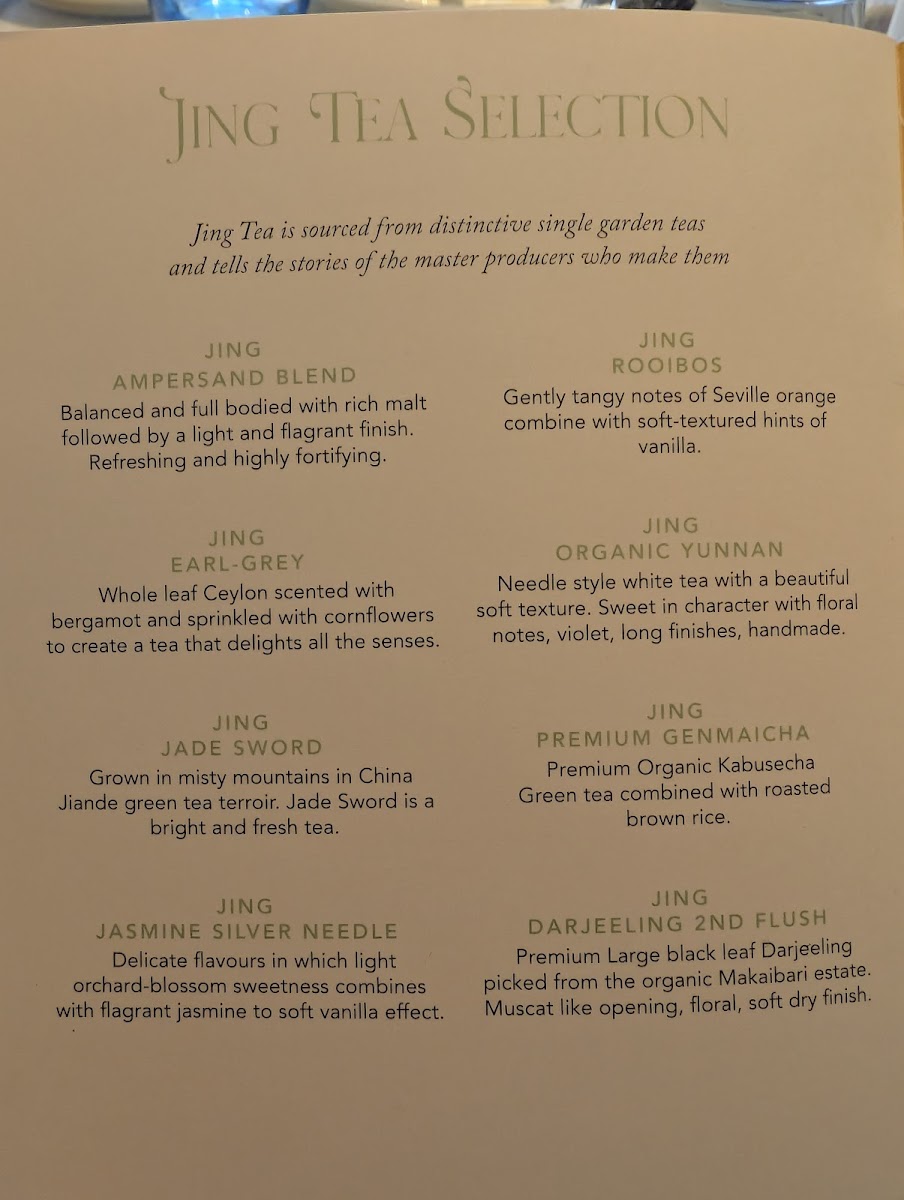 JING TEA SELECTION
Jing Tea is sourced from distinctive single garden teas
and tells the stories of the master producers who make them
JING
AMPERSAND BLEND
Balanced and full bodied with rich malt
followed by a light and flagrant finish.
Refreshing and highly fortifying.
JING
EARL-GREY
Whole leaf Ceylon scented with
bergamot and sprinkled with cornflowers
to create a tea that delights all the senses.
JING
JADE SWORD
Grown in misty mountains in China
Jiande green tea terroir. Jade Sword is a
bright and fresh tea.
JING
JASMINE SILVER NEEDLE
Delicate flavours in which light
orchard-blossom sweetness combines
with flagrant jasmine to soft vanilla effect.
JING
ROOIBOS
Gently tangy notes of Seville orange
combine with soft-textured hints of
vanilla.
JING
ORGANIC YUNNAN
Needle style white tea with a beautiful
soft texture. Sweet in character with floral
notes, violet, long finishes, handmade.
JING
PREMIUM GENMAICHA
Premium Organic Kabusecha
Green tea combined with roasted
brown rice.
JING
DARJEELING 2ND FLUSH
Premium Large black leaf Darjeeling
picked from the organic Makaibari estate.
Muscat like opening, floral, soft dry finish.